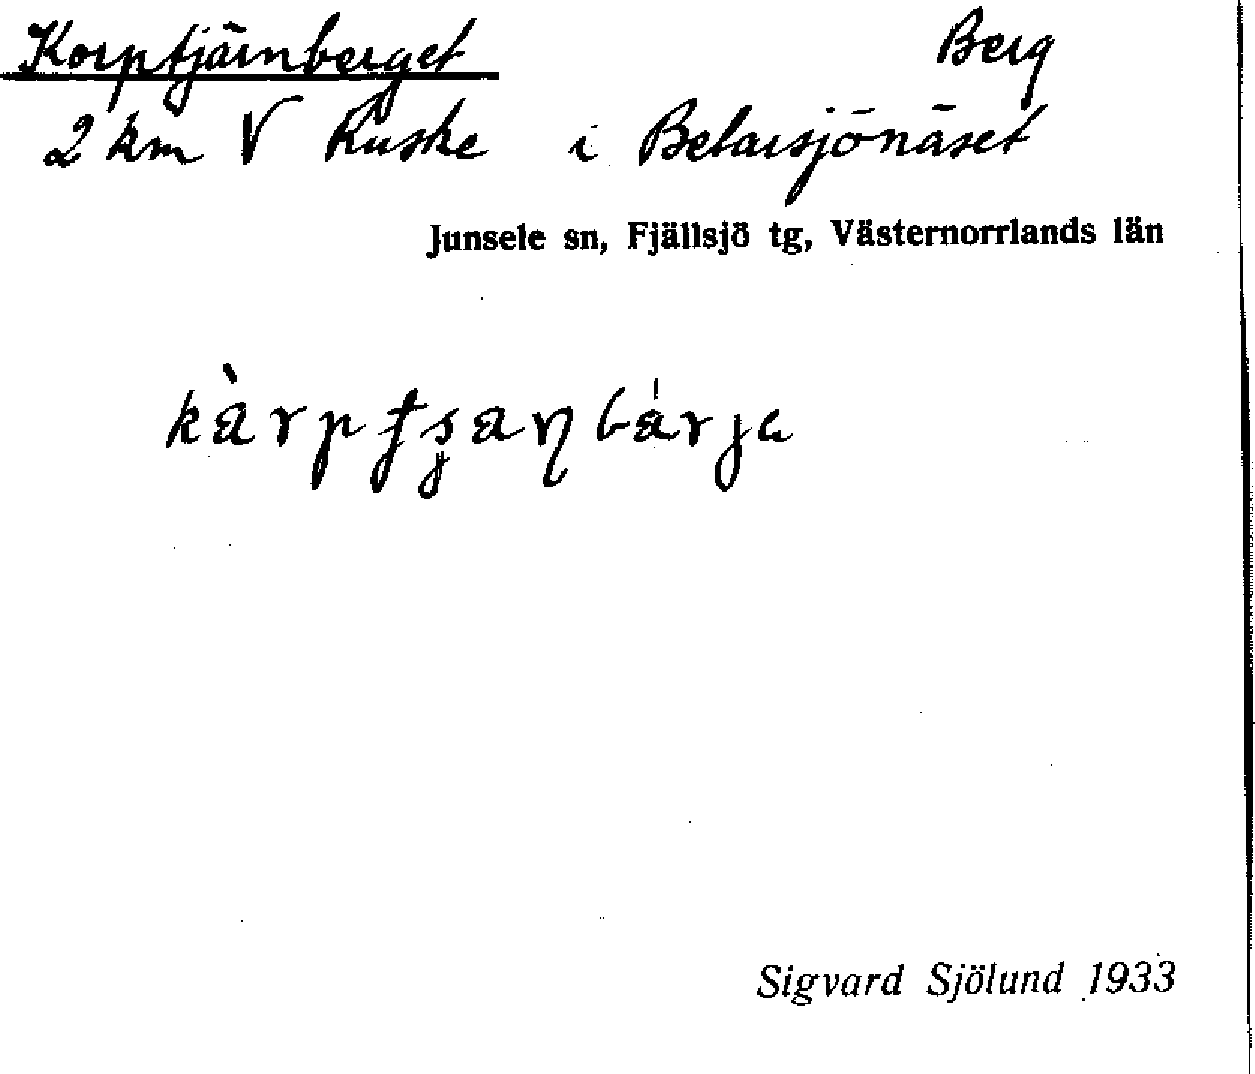 Korptjärnberget Berg
2 km V Ruske i Betarsjönäset
Junsele sn, Fjällsjö tg, Västernorrlands län
Sigvard Sjölund 1933